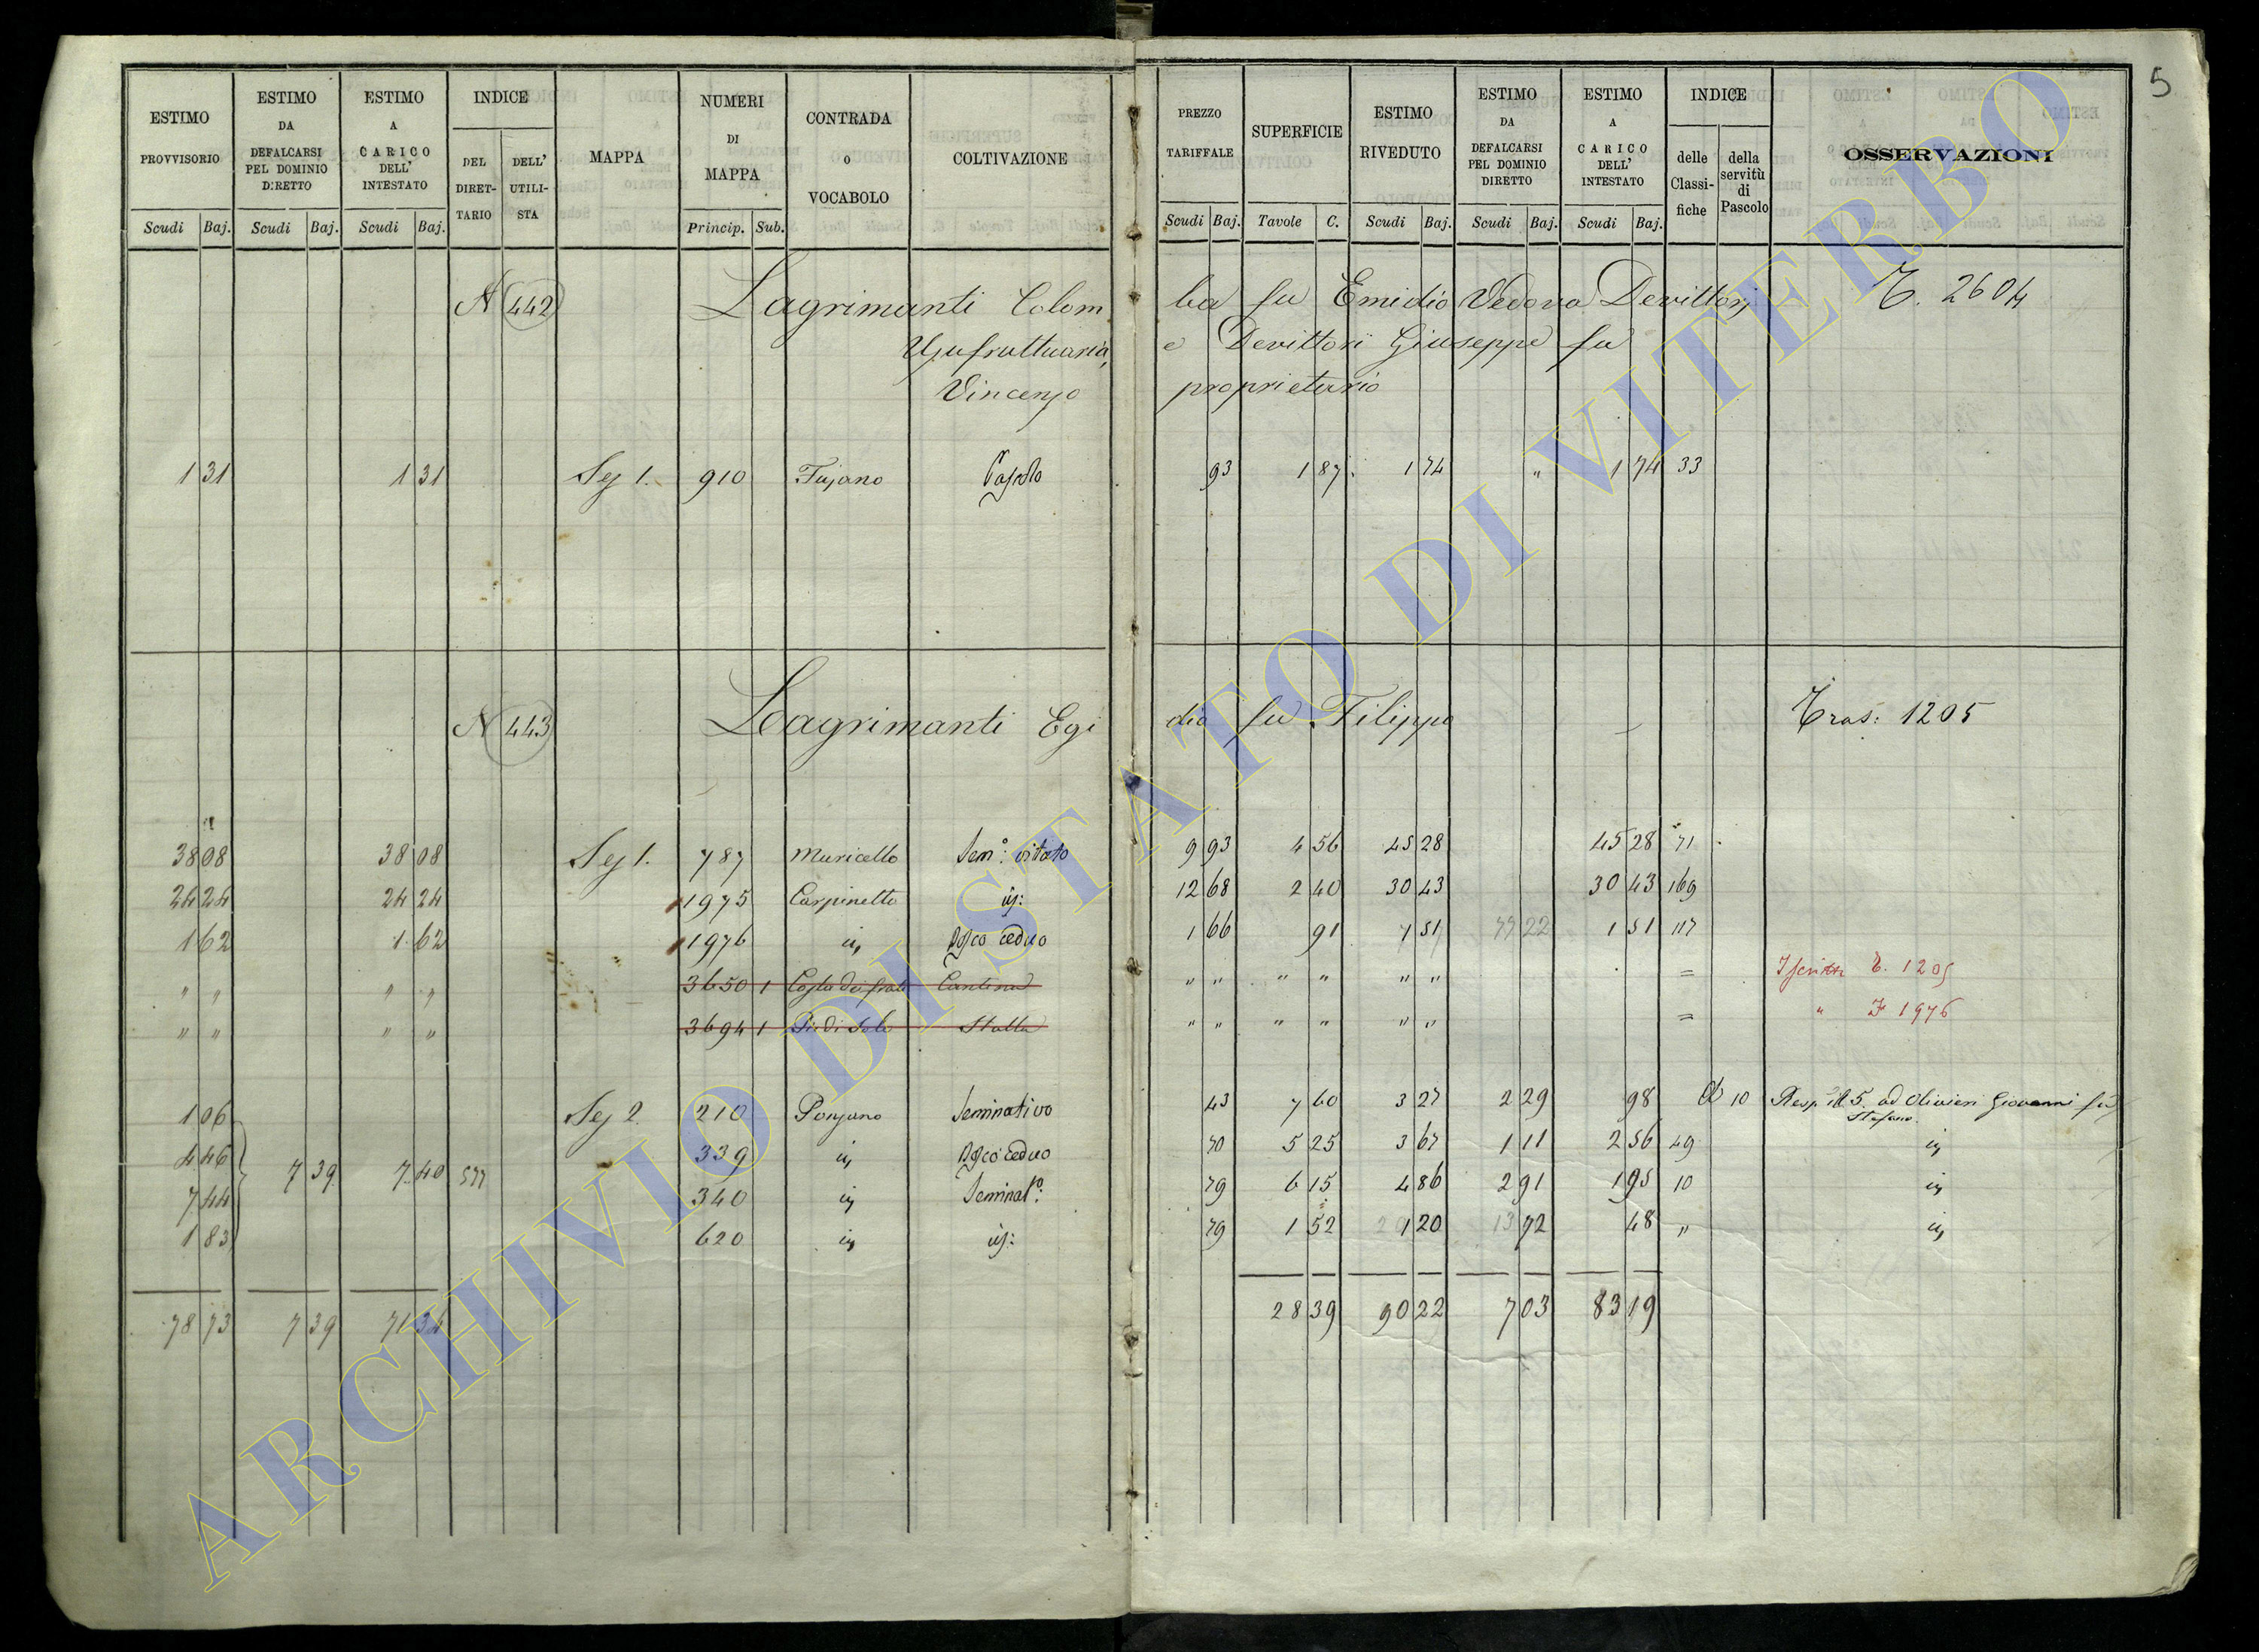 5
ESTIMO PROVVISORIO
ESTIMO DA DEFALCARSI PEL DOMINIO DIRETTO
ESTIMO A CARICO DELL' INTESTATO
INDICE
DEL DIRETTARIO
DELL' UTILISTA
MAPPA
NUMERI DI MAPPA
CONTRADA o VOCABOLO
COLTIVAZIONE
PREZZO TARIFFALE
SUPERFICIE
ESTIMO RIVEDUTO
ESTIMO DA DEFALCARSI PEL DOMINIO DIRETTO
ESTIMO A CARICO DELL' INTESTATO
INDICE
delle Classifiche
della servitù di Pascolo
OSSERVAZIONI
Scudi Baj. Scudi Baj. Scudi Baj. Princip. Sub. Scudi Baj. Tavole C. Scudi Baj. Scudi Baj. Scudi Baj.
N 442 Lagrimanti Colomba fu Emidio Vedova Devittorj T. 2604
Usufruttuaria, e Devittori Giuseppe fu
Vincenzo proprietario
1 31 1 31 Sez 1. 910 Fajano Pascolo 93 1 87 1 74 " 1 74 33
N 443 Lagrimanti Egidio fu Filippo Tras: 1205
38 08 38 08 Sez 1. 787 Muricello Sem.o: vitato 9 93 4 56 45 28 45 28 71
24 24 24 24 1975 Carpinetto id: 12 68 2 40 30 43 30 43 169
1 62 1 62 1976 id Bosco ceduo 1 66 91 1 51 1 51 117
" " " " 3650 1 Costa dei frati Cantina " " " " " " = Iscritta T. 1205
" " " " 3694 1 Piè di Sole Stalla " " " " " " = " F 1976
1 06 Sez 2. 210 Ponzano Seminativo 43 7 60 3 27 2 29 98 10 Resp. al 5. ad Olivieri Giovanni fu Stefano
4 46 7 39 7 40 577 339 id Bosco ceduo 70 5 25 3 67 1 11 2 56 49 id
7 44 340 id Seminat.o: 79 6 15 4 86 2 91 1 95 10 id
1 83 620 id id: 79 1 52 1 20 72 48 " id
78 73 7 39 71 34 28 39 90 22 7 03 83 19
ARCHIVIO DI STATO DI VITERBO